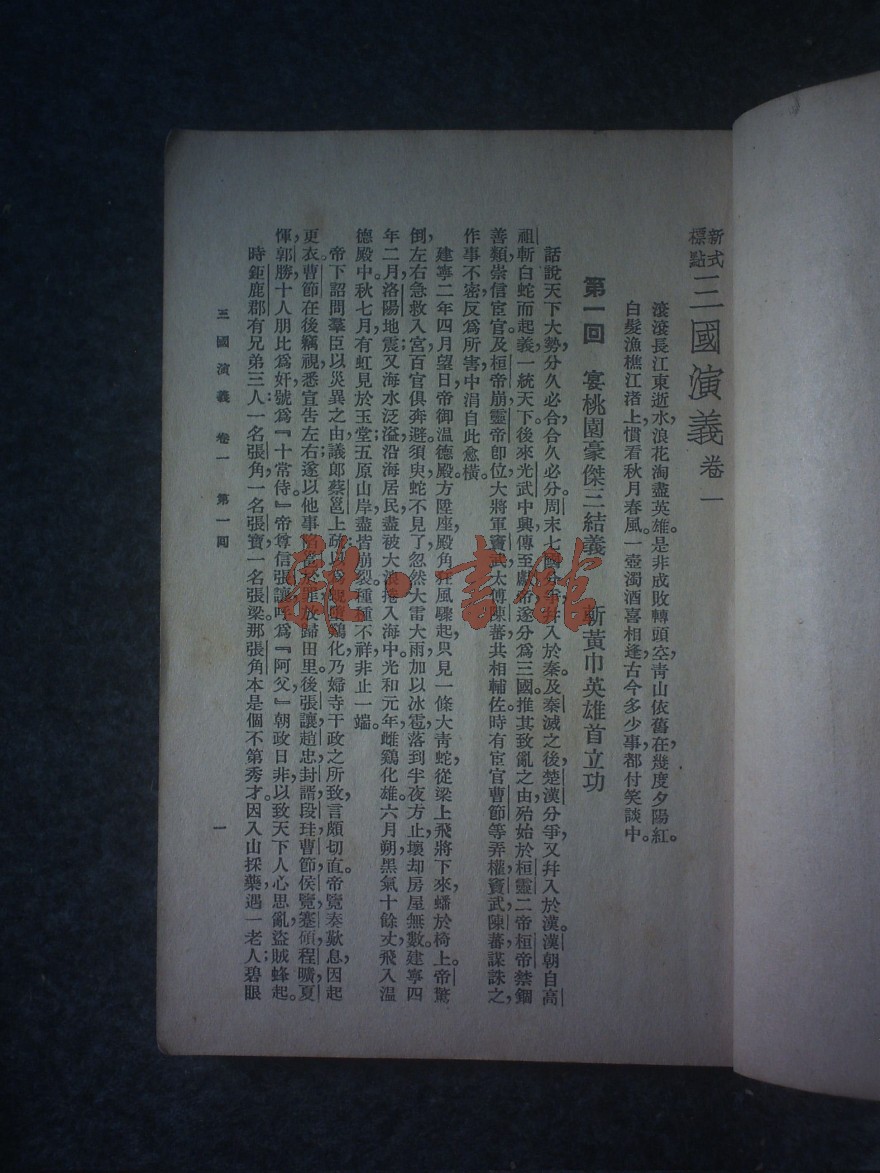 新式標點 三國演義 卷一
滾滾長江東逝水，浪花淘盡英雄。是非成敗轉頭空，靑山依舊在，幾度夕陽紅。
白髮漁樵江渚上，慣看秋月春風。一壺濁酒喜相逢，古今多少事，都付笑談中。
第一回 宴桃園豪傑三結義 斬黃巾英雄首立功
話說天下大勢，分久必合，合久必分。周末七國分爭，幷入於秦。及秦滅之後，楚漢分爭，又幷入於漢。漢朝自高
祖斬白蛇而起義，一統天下。後來光武中興，傳至獻帝，遂分爲三國。推其致亂之由，殆始於桓靈二帝。桓帝禁錮
善類，崇信宦官。及桓帝崩，靈帝卽位，大將軍竇武太傅陳蕃，共相輔佐。時有宦官曹節等弄權，竇武陳蕃謀誅之，
作事不密，反爲所害。中涓自此愈橫。
建寧二年四月望日，帝御溫德殿。方陞座，殿角狂風驟起，只見一條大靑蛇，從梁上飛將下來，蟠於椅上。帝驚
倒，左右急救入宮，百官俱奔避。須臾，蛇不見了。忽然大雷大雨，加以冰雹，落到半夜方止，壞却房屋無數。建寧四
年二月，洛陽地震；又海水泛溢，沿海居民，盡被大浪捲入海中。光和元年，雌鷄化雄。六月朔，黑氣十餘丈，飛入溫
德殿中。秋七月，有虹見於玉堂，五原山岸，盡皆崩裂。種種不祥，非止一端。
帝下詔問羣臣以災異之由，議郞蔡邕上疏，以爲墮鷄化，乃婦寺干政之所致，言頗切直。帝覽奏歎息，因起
更衣。曹節在後竊視，悉宣告左右；遂以他事陷邕於罪，放歸田里。後張讓，趙忠，封諝，段珪，曹節，侯覽，蹇碩，程曠，夏
惲，郭勝十人朋比爲奸，號爲『十常侍』。帝尊信張讓，呼爲『阿父』。朝政日非，以致天下人心思亂，盜賊蜂起。
時鉅鹿郡有兄弟三人：一名張角，一名張寶，一名張梁。那張角本是個不第秀才。因入山採藥，遇一老人，碧眼
三國演義 卷一 第一回
一
雜·書館